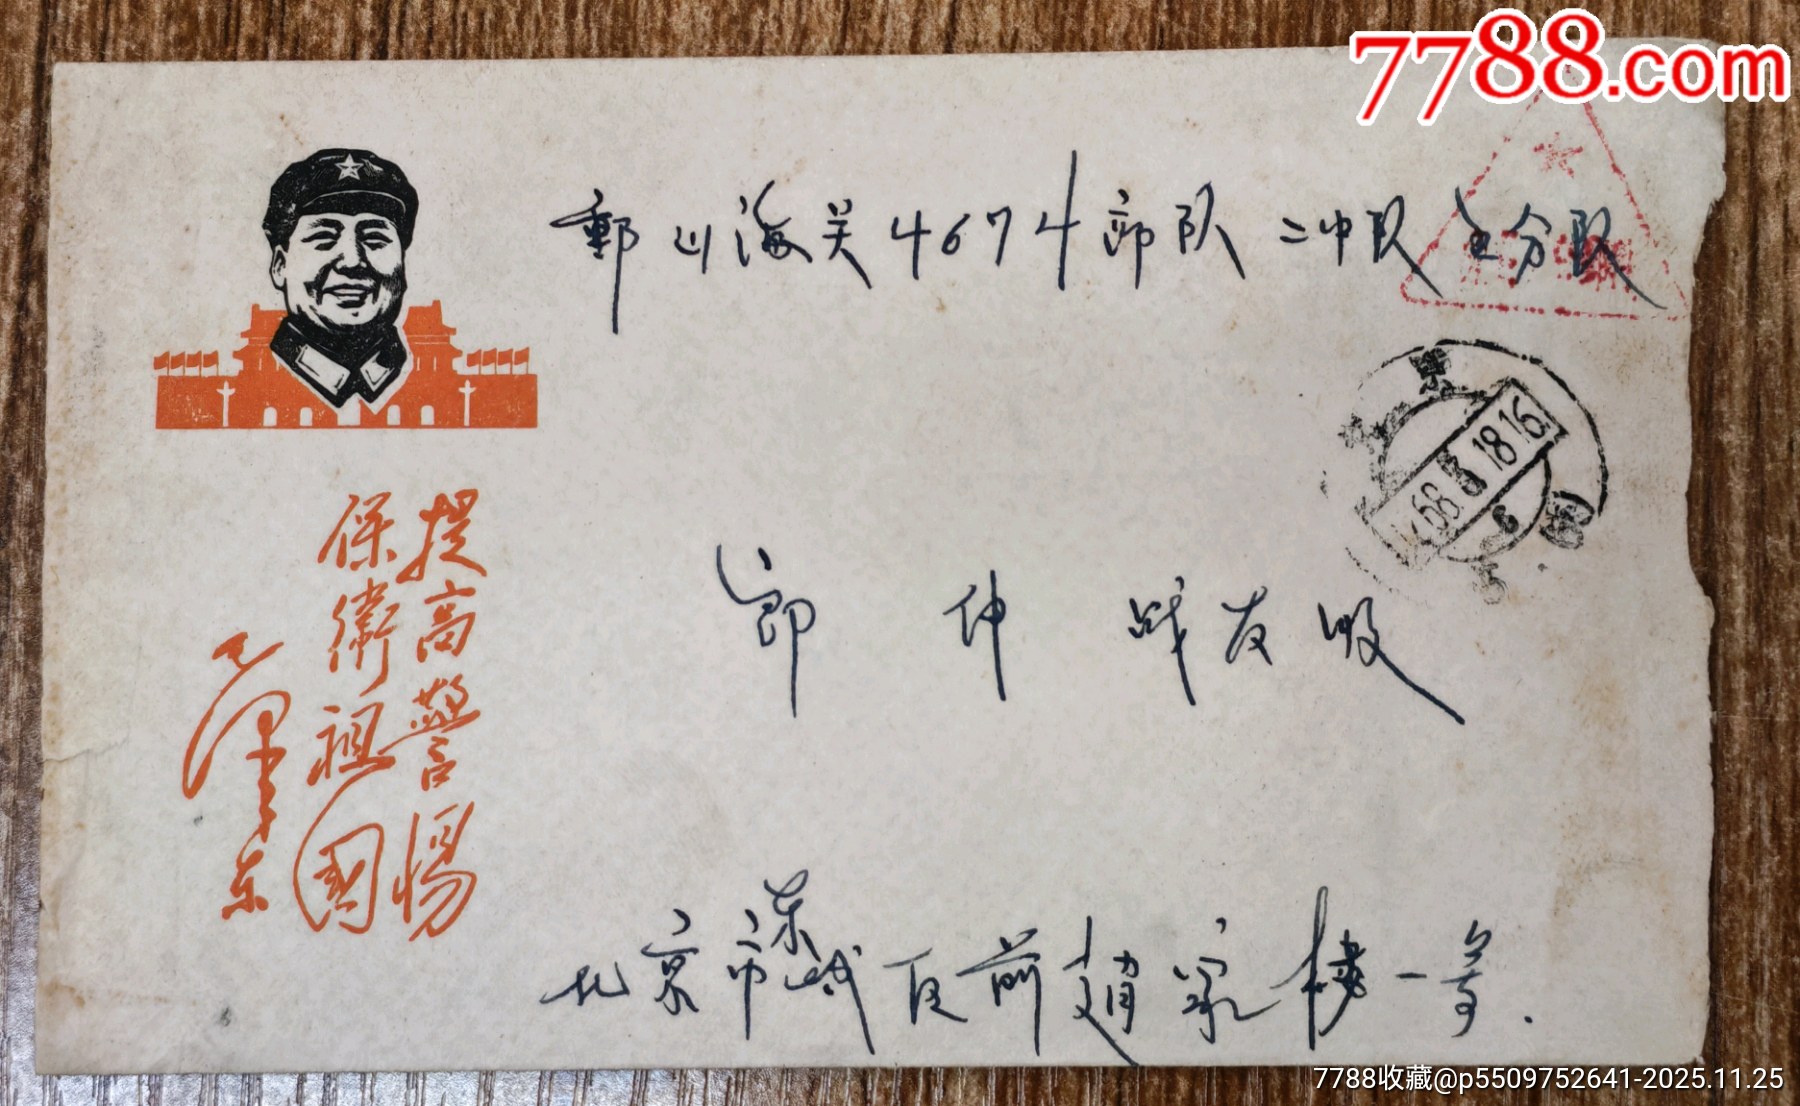 7788.com
郵 山海关4674部队 二中队 五分队
提高警惕
保衛祖國
毛澤东
京
68.8.18.16
郭 仲 战友收
北京市东城区前趙家楼一号.
7788收藏@p5509752641-2025.11.25